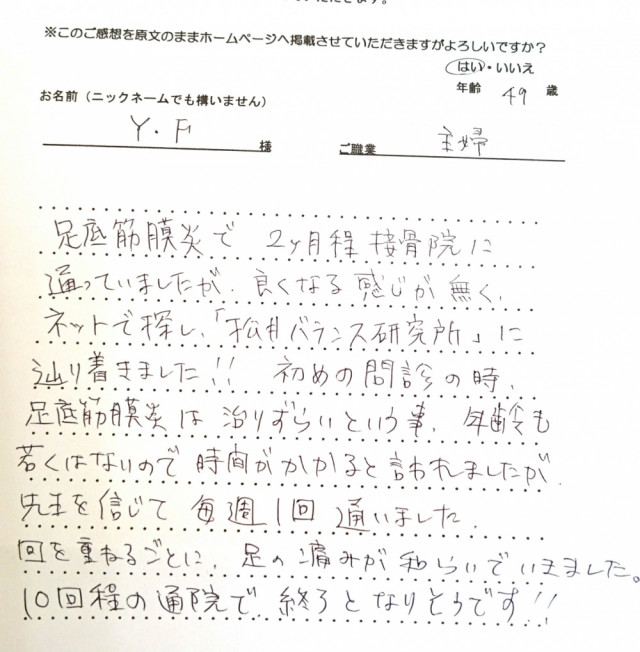 ※このご感想を原文のままホームページへ掲載させていただきますがよろしいですか？
はい・いいえ
お名前（ニックネームでも構いません） 年齢 49 歳
Y.F 様 ご職業 主婦
足底筋膜炎で 2ヶ月程 接骨院に
通っていましたが、良くなる感じが無く、
ネットで探し、「松井バランス研究所」に
辿り着きました!! 初めの問診の時、
足底筋膜炎は治りずらいという事、年齢も
若くはないので時間がかかると言われましたが、
先生を信じて 毎週1回 通いました。
回を重ねるごとに、足の痛みが和らいでいきました。
10回程の通院で、終了となりそうです!!